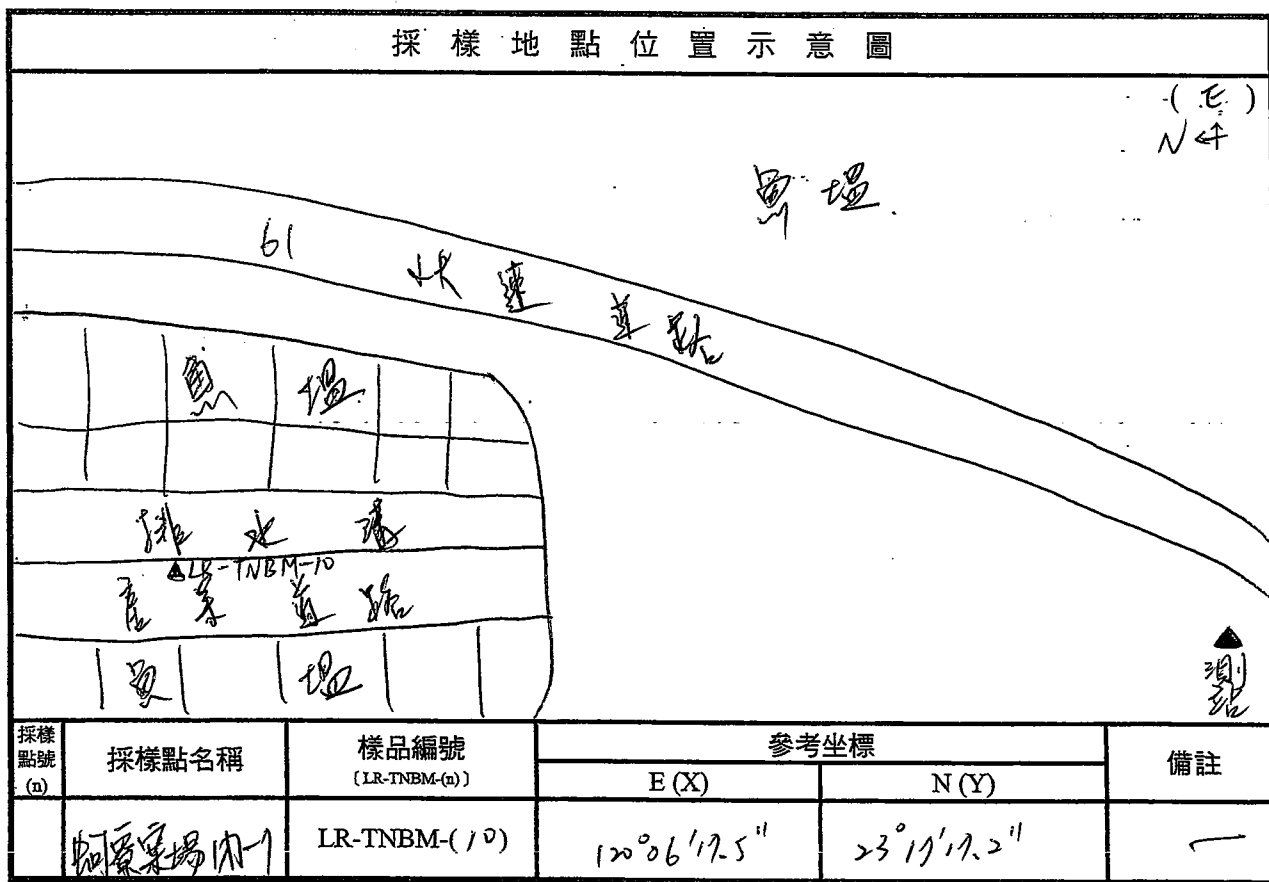 採樣地點位置示意圖
(E)
N
魚塭
61 快速道路
魚塭
排水溝
LR-TNBM-10
產業道路
魚塭
測站
採樣點號(n) 採樣點名稱 樣品編號 [LR-TNBM-(n)] 參考坐標 E(X) N(Y) 備註
LR-TNBM-(10) 120°06'17.5" 23°17'17.2" —